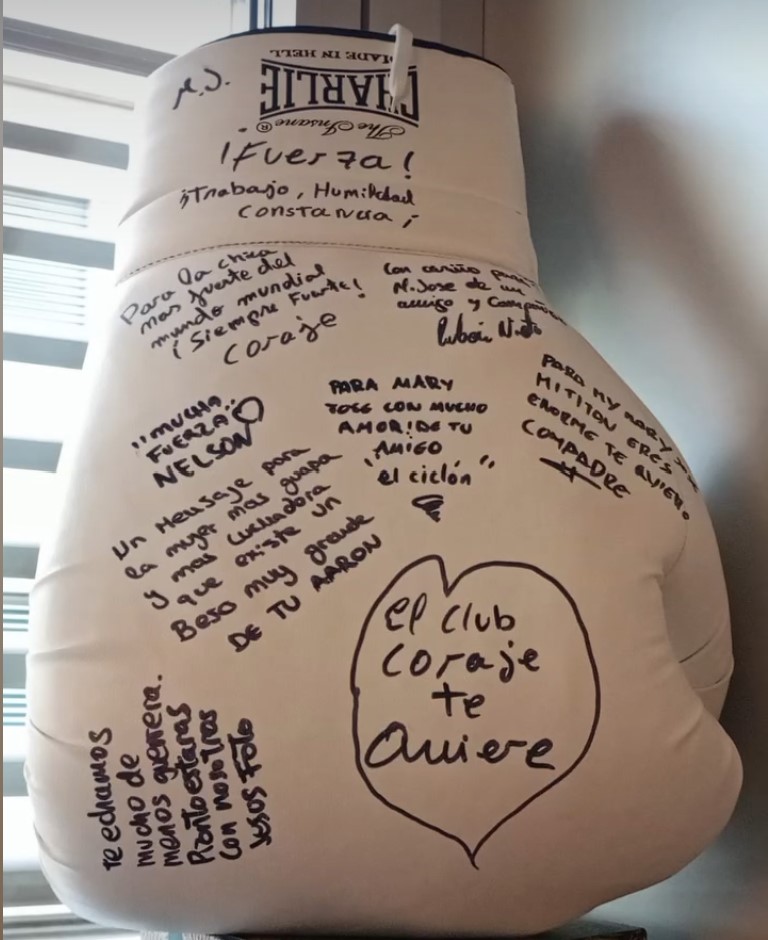 MADE IN HELL
CHARLIE
The Insane ®
M.J.
¡Fuerza!
¡Trabajo, Humildad
Constancia,¡
Para la chica
mas fuerte del
mundo mundial
¡Siempre Fuerte!
Coraje
Con cariño para
M. Jose de un
amigo y Compañero
Rubén Nieto
¡¡MUCHA
FUERZA!!
NELSON
PARA MARY
JOSE CON MUCHO
AMOR! DE TU
AMIGO
"el ciclón"
PARA MY MARY
MITITON ERES
ENORME TE QUIERO
COMPADRE
Un Mensaje para
la mujer mas guapa
y mas luchadora
que existe un
Beso muy grande
DE TU AARON
el Club
Coraje
te
Quiere
Te echamos
mucho de
menos guerrera.
Pronto estaras
con nosotros
Jesus Foto